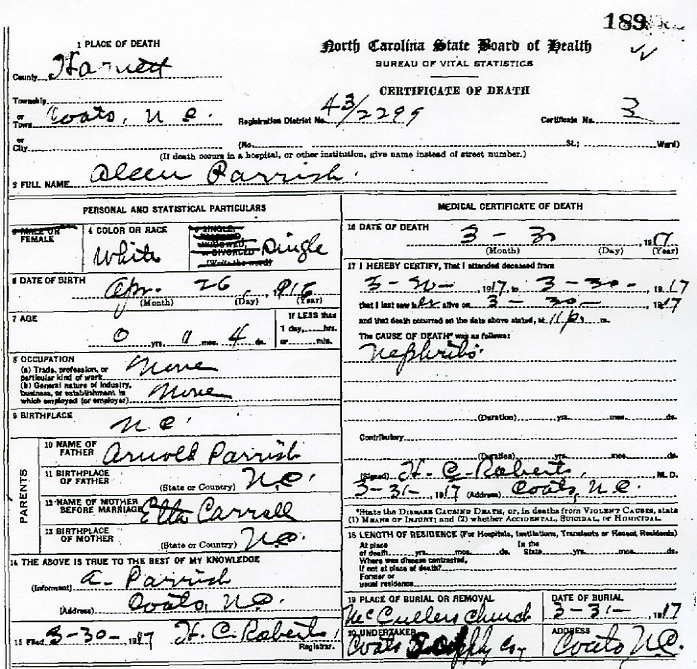 189
1 PLACE OF DEATH
North Carolina State Board of Health
BUREAU OF VITAL STATISTICS
CERTIFICATE OF DEATH
County Harnett
Township
or
Town Coats, N.C.
Registration District No. 43/2299
Certificate No. 3
or
City
(No. St.; Ward)
(If death occurs in a hospital, or other institution, give name instead of street number.)
2 FULL NAME Aleen Parrish.
PERSONAL AND STATISTICAL PARTICULARS
3 MALE OR FEMALE
4 COLOR OR RACE
White
5 SINGLE, WIDOWED, OR DIVORCED (Write the word) Single
6 DATE OF BIRTH
Apr. 26, 916
(Month) (Day) (Year)
7 AGE
0 yrs. 11 mos. 4 ds.
If LESS than
1 day, hrs.
or min.
8 OCCUPATION
(a) Trade, profession, or
particular kind of work None
(b) General nature of industry,
business, or establishment in
which employed (or employer) None
9 BIRTHPLACE
N.C.
PARENTS
10 NAME OF
FATHER Arnold Parrish
11 BIRTHPLACE
OF FATHER
(State or Country) N.C.
12 NAME OF MOTHER
BEFORE MARRIAGE Etta Carroll
13 BIRTHPLACE
OF MOTHER
(State or Country) N.C.
14 THE ABOVE IS TRUE TO THE BEST OF MY KNOWLEDGE
(Informant) A. Parrish
(Address) Coats, N.C.
15 Filed 3-30- 1917 H. C. Roberts,
Registrar.
MEDICAL CERTIFICATE OF DEATH
16 DATE OF DEATH
3 - 30 1917
(Month) (Day) (Year)
17 I HEREBY CERTIFY, That I attended deceased from
3-30- 1917, to 3-30-, 1917
that I last saw her alive on 3-30- 1917
and that death occurred on the date above stated, at 11 p. m.
The CAUSE OF DEATH* was as follows:
Nephritis.
(Duration) yrs. mos. ds.
Contributory
(Duration) yrs. mos. ds.
(Signed) H. C. Roberts, M. D.
3-31- 1917 (Address) Coats, N.C.
*State the DISEASE CAUSING DEATH, or, in deaths from VIOLENT CAUSES, state
(1) MEANS OF INJURY; and (2) whether ACCIDENTAL, SUICIDAL, or HOMICIDAL.
18 LENGTH OF RESIDENCE (For Hospitals, Institutions, Transients or Recent Residents)
At place
of death yrs. mos. ds.
In the
State yrs. mos. ds.
Where was disease contracted,
if not at place of death?
Former or
usual residence
19 PLACE OF BURIAL OR REMOVAL
McCullers Church
DATE OF BURIAL
3-31- 1917
20 UNDERTAKER
Coats Supply Coy
ADDRESS
Coats N.C.